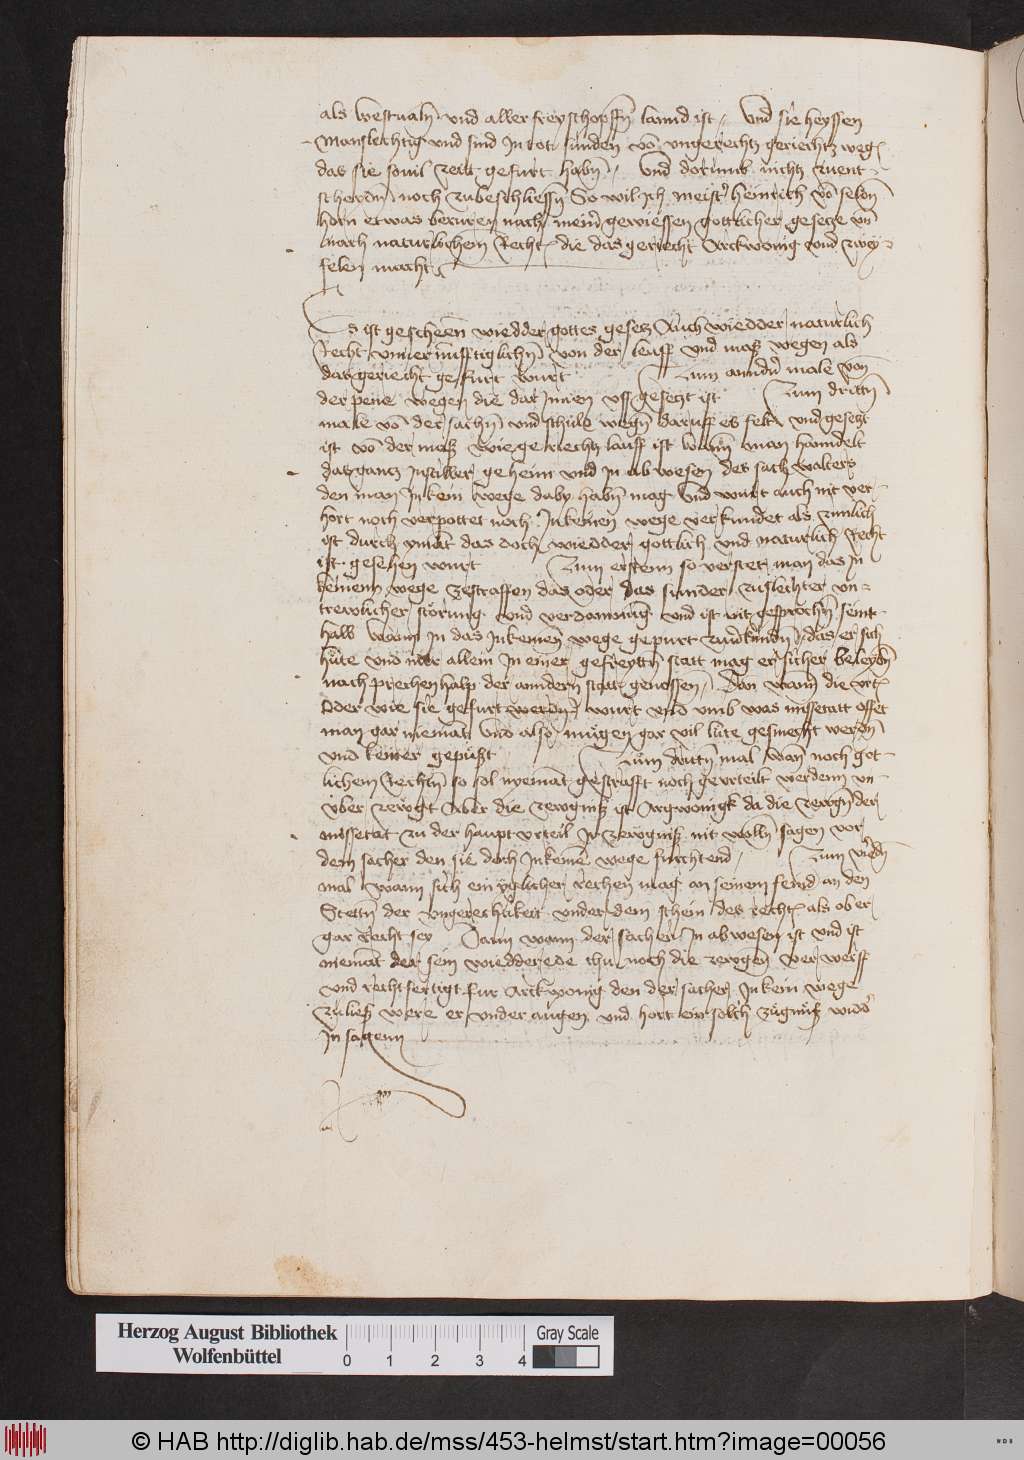 als westualn vnd aller freyschopffn lannd ist / Vnd sie heyssen
Manslechtig vnd sind In totsunden vo vngerechtz geriechtz weg
das sie souil zeitt gefurt habn / Vnd dorumb nichtz zuent-
scheiden noch zubeschliessn So wil Ich meister heinrich vo seldn
horn etwas beruren nach mein gewiessen gottlicher gesetze vn
nach naturlichem Recht die das gerecht Arckwonig vnd zwey-
felen macht
Es ist gescheen wiedder gottes gesetz Auch wiedder naturlich
Recht vnuernufftiglichn von der leuff vnd maß wegen als
das geriecht gefurt wurt Zum anndern male von
der pene wegen die dar Innen vff gesetzt ist Zum drittn
male vo der sachn vnd schuld wegn daruff es felt vnd gesetzt
ist vo der maß wie gerichtz lauff ist wann man hanndelt
das gantz In stiller geheim vnd In abwesen des sach walters
den man In kein wege daby habn mag Vnd wurt auch nit ver-
hort noch verpottet noch In keinen wege verkundet als zimlich
ist durch ymat das doch wiedder gottlich vnd naturlich Recht
ist gesehen wurt Zum erstenn so verstet man das In
keinenn wege zestraffen das oder das sunder zuslechter vn-
trewlicher störung vnd verdomnung vnd ist nit gesprochn seint-
halb wann In das In keinen wege gepurt zuuerkundn das er sich
hüte vnd nder allein In einer gefreyttn statt mag er sicher beleybn
nach prechenhalp der anndern statt genossen / Dan wann die vrt
Oder wie sie gefurt werdn wurt vnd vmb was missetatt offet
man gar niemat Vnd also mugen gar vil lüte gesmecht werden
vnd keiner gepüßt Zum dritn mal wan noch got-
lichem Rechtn so sol nyemat gestrafft noch geurteilt werdenn vn-
vber zewgt Aber die zewgniß ist Argwonigk da die zewgn der
missetat zu der haupt vrteil Ir zewgniß nit wolln sagen vor
dem sacher den sie doch In keine wege furchtend / Zum vierdn
mal wann sich ein yglicher rechen mag an seinem feind an den
Stettn der vngerechtikeit vnder dem schein des rechts als ob er
gar Recht sey Dann wann der sacher In abwesen ist vnd ist
niemat der sein wiedderede thu noch die zewgen verwerff
vnd rechtfertigt fur Arckwonig den der sacher In kein wege
zuließ were er vnder augen vnd hort ein solch zügnüß widd
In sagenn
Herzog August Bibliothek
Wolfenbüttel
0 1 2 3 4
Gray Scale
© HAB http://diglib.hab.de/mss/453-helmst/start.htm?image=00056